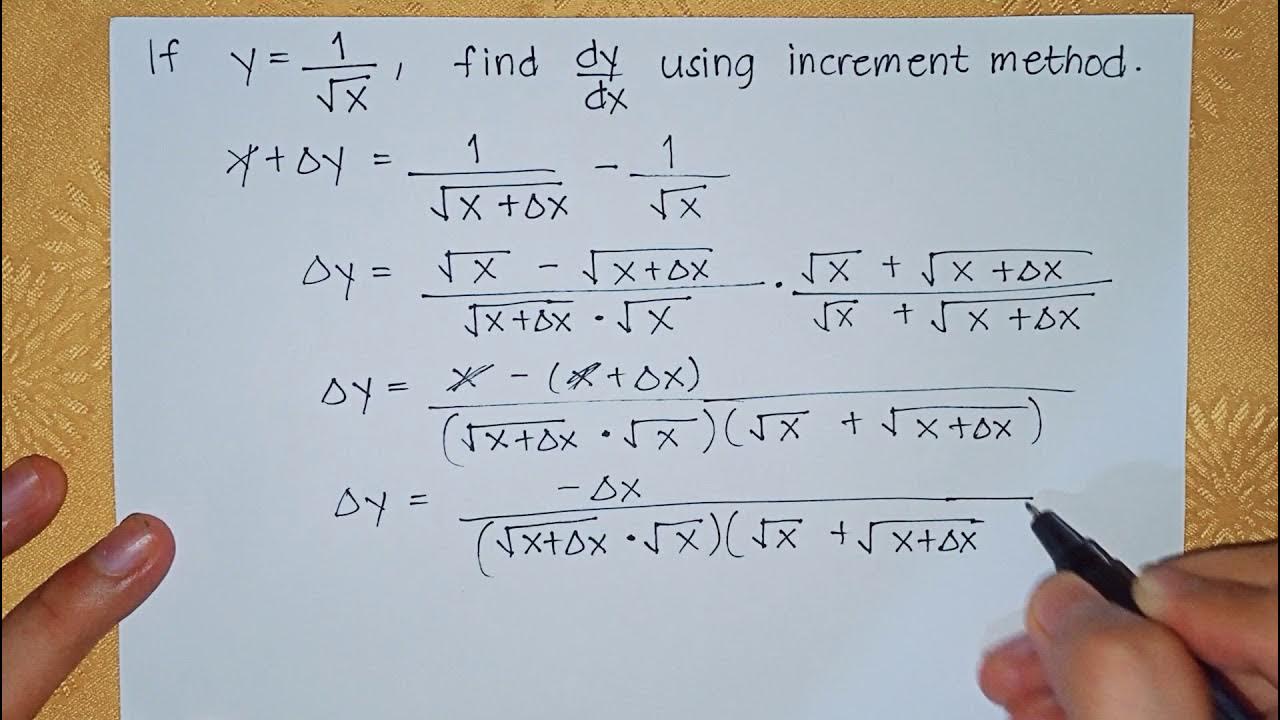 If y = 1/√x, find dy/dx using increment method.
y + Δy = 1/√(x + Δx) - 1/√x
Δy = (√x - √(x+Δx))/(√(x+Δx) · √x) · (√x + √(x + Δx))/(√x + √(x + Δx))
Δy = (x - (x + Δx))/((√(x+Δx) · √x)(√x + √(x+Δx)))
Δy = -Δx/((√(x+Δx) · √x)(√x + √(x+Δx)